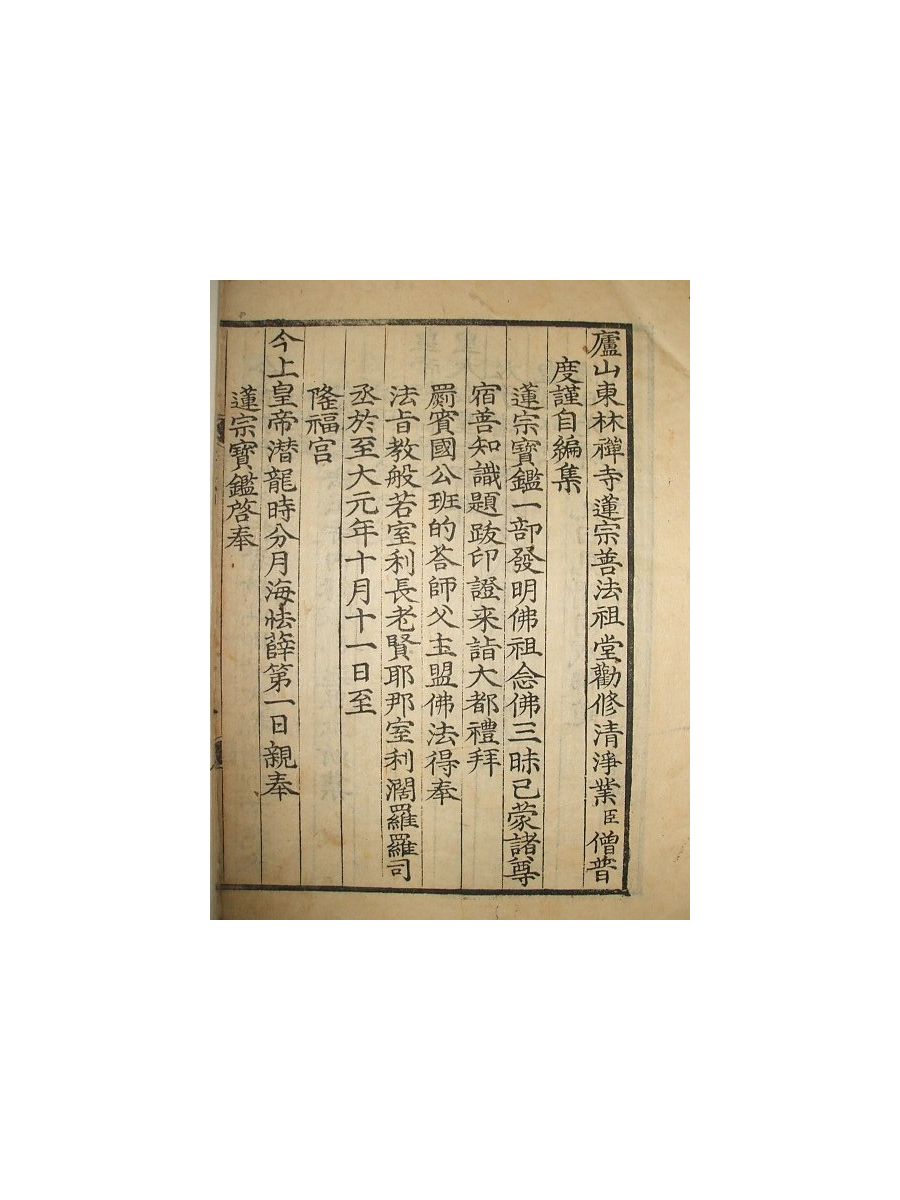 廬山東林禪寺蓮宗善法祖堂勸修清淨業臣僧普
度謹自編集
蓮宗寶鑑一部發明佛祖念佛三昧已蒙諸尊
宿善知識題跋印證来詣大都禮拜
罽賓國公班的荅師父主盟佛法得奉
法旨教般若室利長老賢耶那室利濶羅羅司
丞於至大元年十月十一日至
隆福宫
今上皇帝潜龍時分月海怯薛第一日親奉
蓮宗寶鑑啓奉